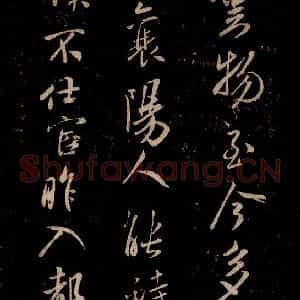 物至今多
襄陽人能詩
不仕宦昨入都
Shufawang.CN